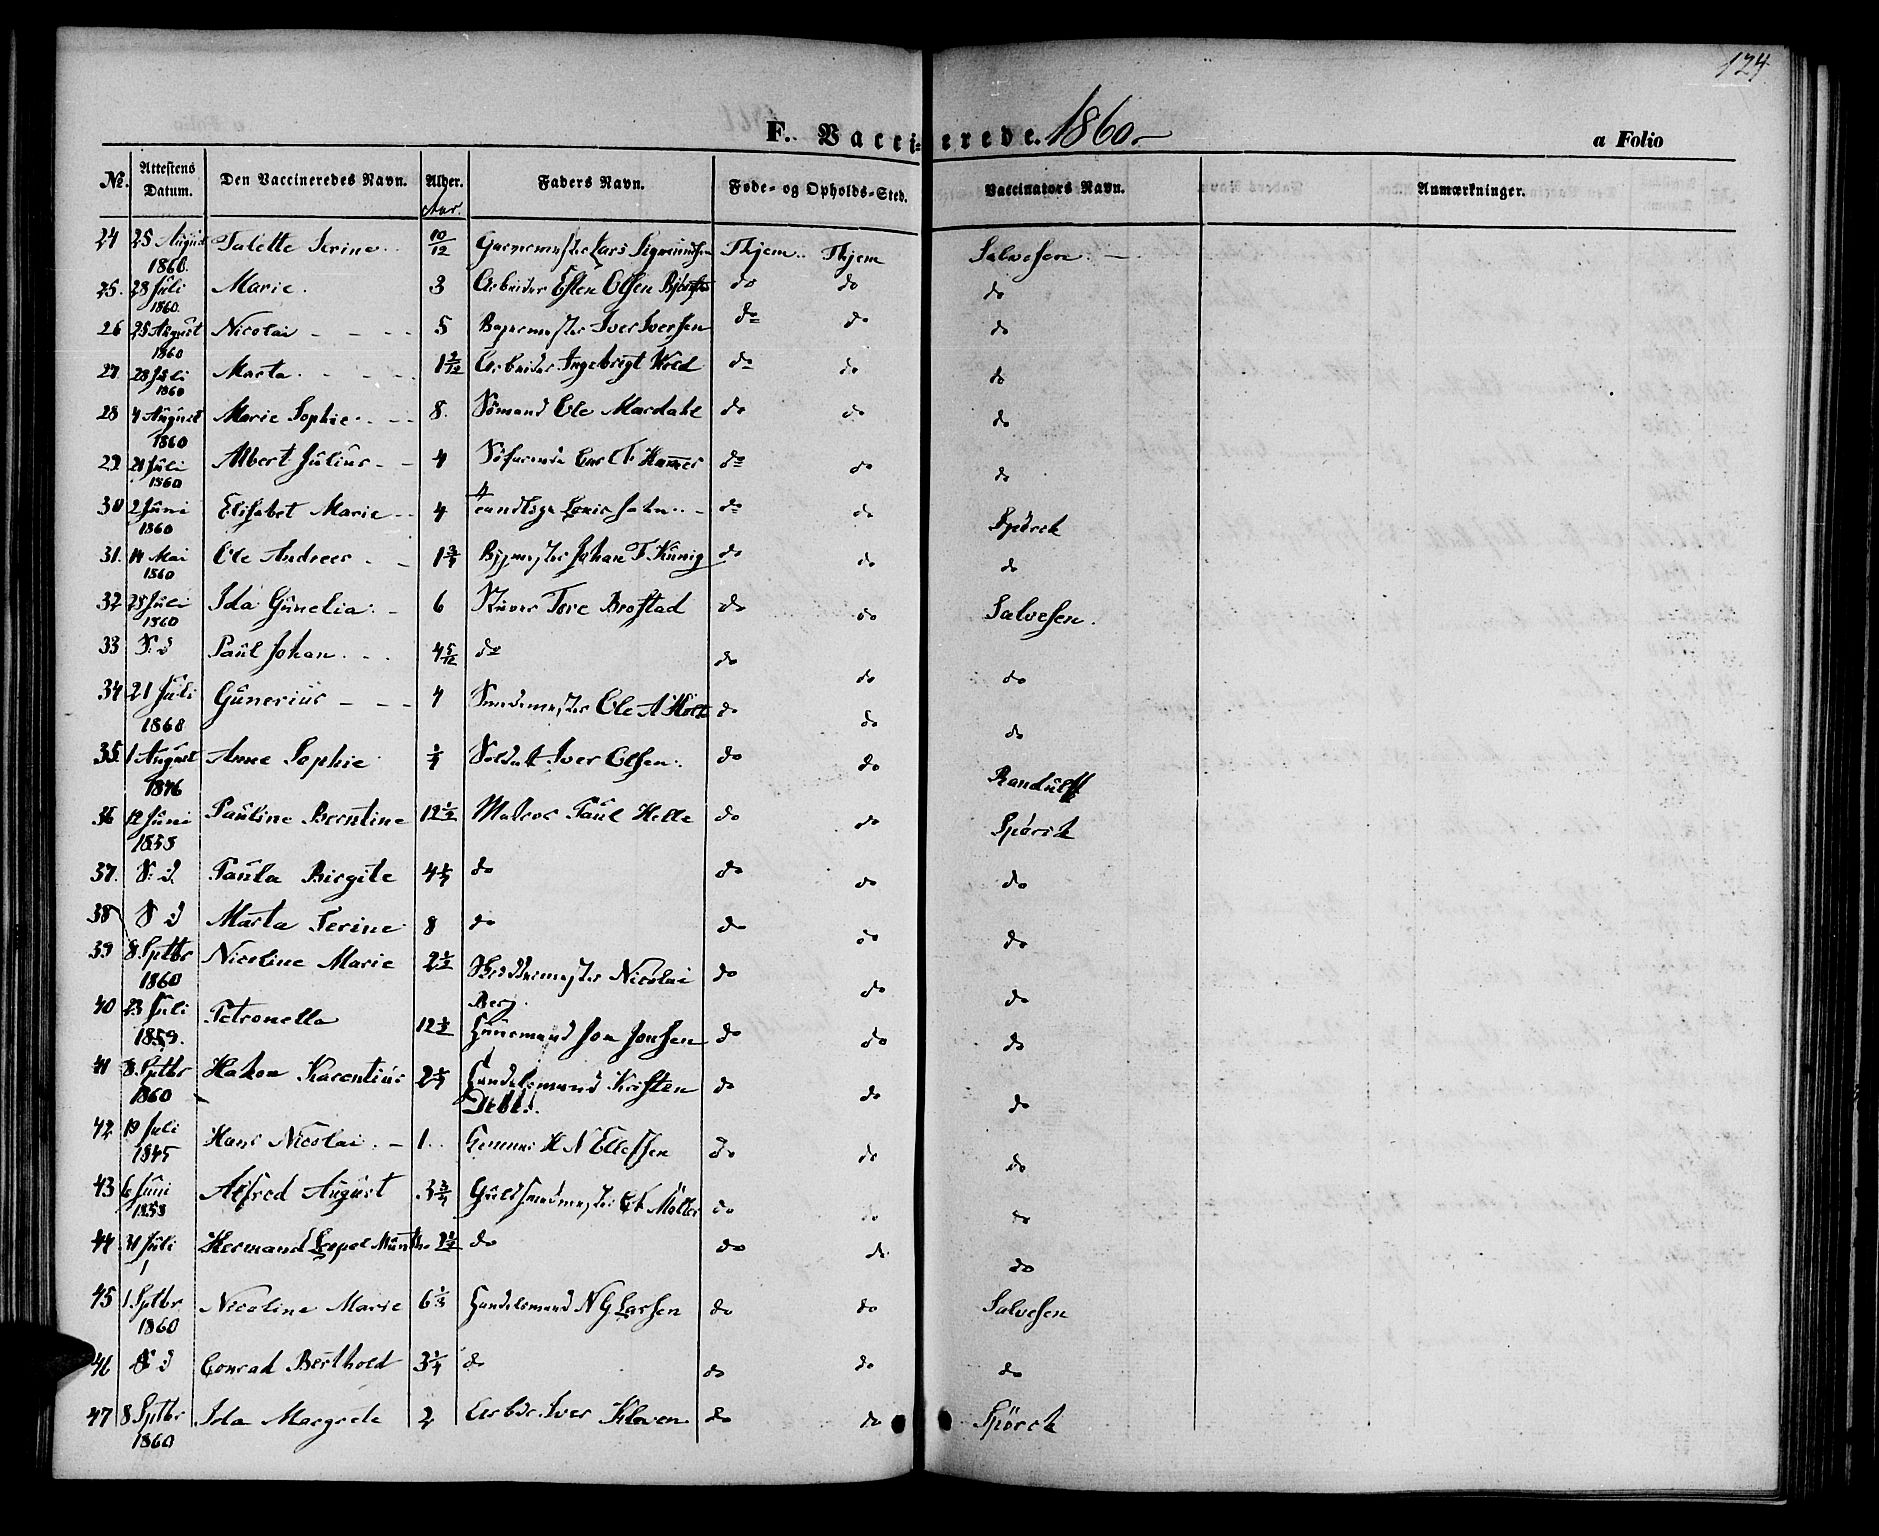 124
F. Vaccinerede. 1860.
a Folio
No. Attestens Datum. Den Vaccineredes Navn. Alder. Aar. Faders Navn. Føde- og Opholds-Sted. Vaccinators Navn. Anmærkninger.
24 25 August 1860. Talette Serine 10/12 Lars Sigmundsen Thjem Thjem Salvesen.
25. 28 Juli 1860. Marie. 3 Arbeider Esten Olsen do do do
26 25 August 1860 Nicolai 5 Iver Iversen do do do
27. 28 Juli 1860 Marta. 1 2/12 Arbeider Ingebrigt Kold do do do
28 4 August 1860 Marie Sophie 8. Sömand Ole Mardahl do do do
29 21 Juli 1860 Albert Julius 4 Söfarende do do do
30 2 Juni 1860 Elisabet Marie 4 do do Spörck
31. 14 Mai 1860 Ole Andreas 1 3/4 Johan F. Künig do do do
32 28 Juli 1860 Ida Gunelia 6 Tore Brostad do do Salvesen.
33 S. d Paul Johan 4 5/12 do do do do
34 21 Juli 1860 Gunerius 4 Smedemester Ole A do do do
35. 1 August 1846 Anne Sophie 3/4 Soldat Iver Olsen. do do Randulff
36 12 Juni 1858 Pauline Berntine 12 1/2 Matros Paul Helle do do Spörck
37. S. d. Paula Birgite 4 1/4 do do do do
38 S d Marta Serine 8 do do do do
39 8. Sptbr 1860 Nicoline Marie 2 1/2 Skreddermester Nicolai Berg. do do do
40 23 Juli 1859. Petronella 12 1/2 Huusmand Jon Jonsen do do do
41 8. Sptbr 1860 Hakon Karentius 2 1/4 Handelsmand Kristen do do do
42 19 Juli 1845 Hans Nicolai. 1. H N Ellefsen do do do
43 6 Juni 1858 Alfred August 3 3/4 Guldsmedmester Möller do do do
44 31 Juli Hermand do do do do
45 1. Sptbr 1860 Nicoline Marie 6 1/3 Handelsmand N G Larsen do do Salvesen
46 S d Conrad Berthold 3 1/4 do do do do
47 8 Sptbr 1860 Ida Margrete 2 Arbdr. Iver Kloven do do Spörck